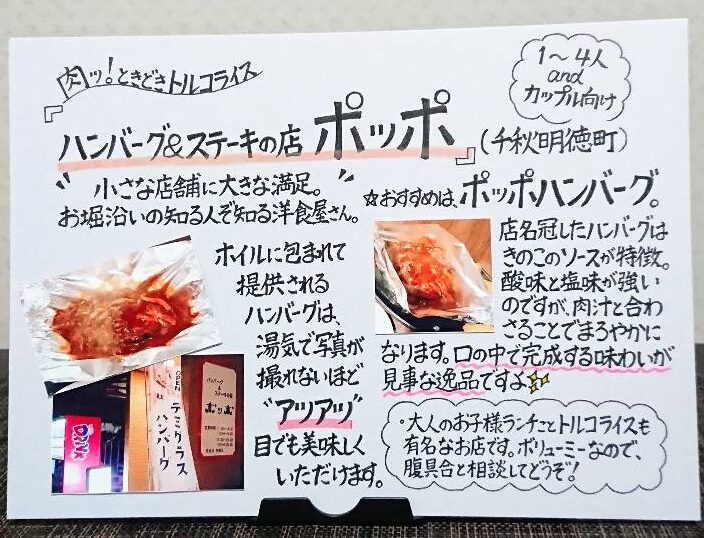 肉ッ!ときどきトルコライス
1～4人
and
カップル向け
『ハンバーグ&ステーキの店 ポッポ』(千秋明徳町)
"小さな店舗に大きな満足。"
お堀沿いの知る人ぞ知る洋食屋さん。
☆おすすめは、ポッポハンバーグ。
ホイルに包まれて
提供される
ハンバーグは、
湯気で写真が
撮れないほど
"アツアツ"
目でも美味しく
いただけます。
店名冠したハンバーグは
きのこのソースが特徴。
酸味と塩味が強い
のですが、肉汁と合わ
さることでまろやかに
なります。口の中で完成する味わいが
見事な逸品ですよ✨
・大人のお子様ランチことトルコライスも
有名なお店です。ボリューミーなので、
腹具合と相談してどうぞ!
OPEN
デミグラス
ハンバーグ
ハンバーグ
&
ステーキの店
ポッポ